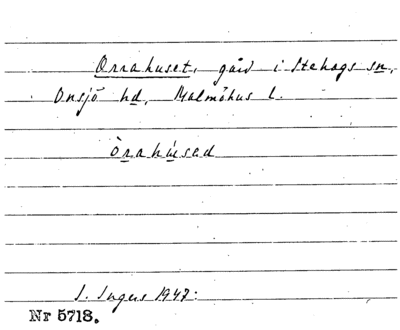 Orrahuset, gård i Stehags sn,
Onsjö hd, Malmöhus l.
Òrahúsəd
I. Ingers 1947.
Nr 5718.